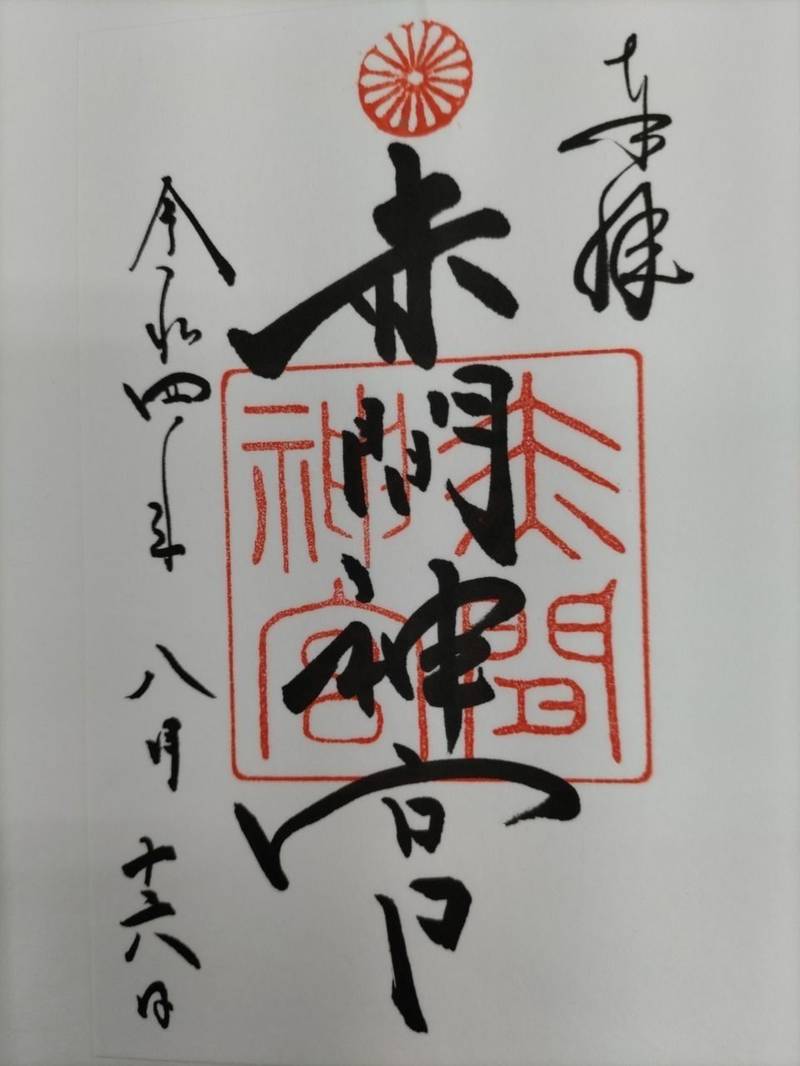 奉拝
赤間神宮
赤間
神宮
令和四年八月十六日